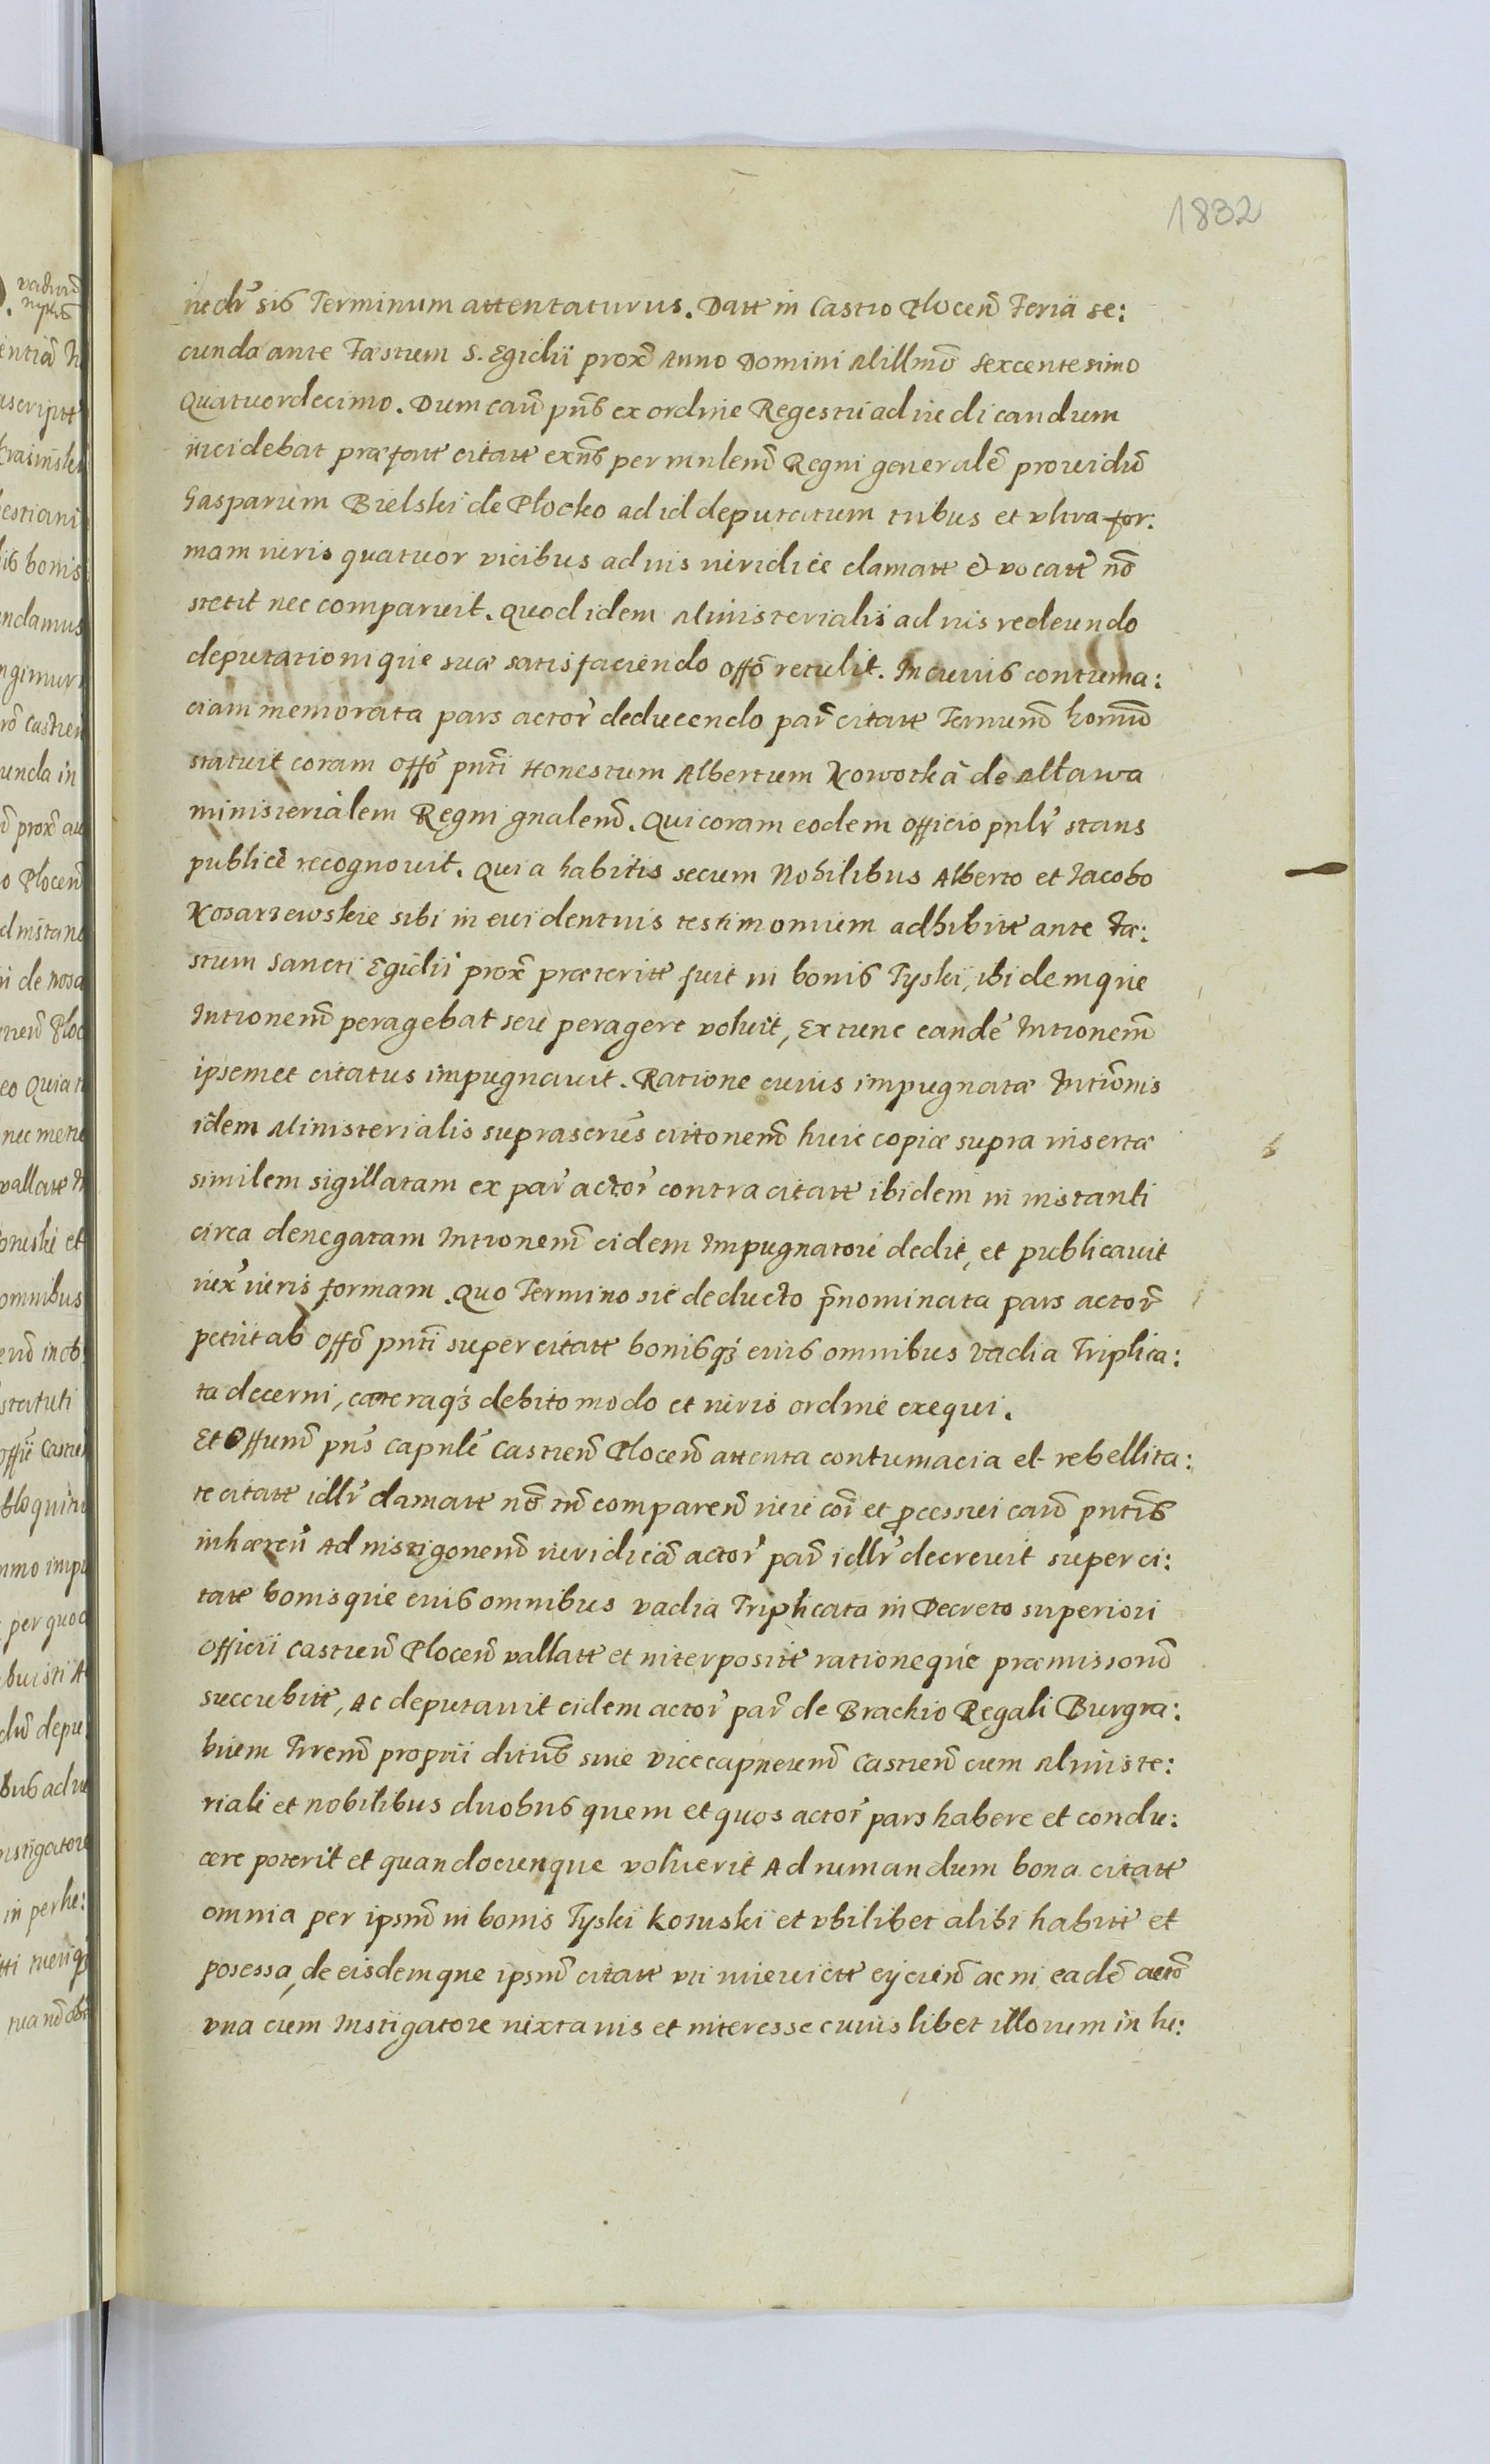 1832
iudlr sis Terminum attentaturus. Datt in Castro Plocen̄ Feria se:
cunda ante Faestum S. Egidii prox̄ Anno Domini Millmō sexcentesimo
Quatuordecimo. Dum caū pn̄s ex ordine Regestri ad iudicandum
incidebat praefatt citatt exn̄s per mnlem̄ Regni generalē prouidū
Gasparum Bielski de Plocko ad id deputatum tribus et vltra for:
mam iuris quatuor vicibus ad ius iuridice clamatt & vocatt nō
stetit nec comparuit. Quod idem Ministerialis ad ius redeundo
deputationique suae satisfaciendo offō retulit. In cuius contuma:
ciam memorata pars actor̄ deducendo par̄ citatt Terminū hornū
statuit coram offō pn̄ti Honestum Albertum Nowotka de Mława
ministerialem Regni gnalem̄. Qui coram eodem officio pnlr̄ stans
publice recognouit. Quia habitis secum Nobilibus Alberto et Jacobo
Kosarzewskie sibi in euidentius testimonium adhibitt ante Fae:
stum Sancti Egidii prox̄ praeteritt fuit in bonis Tyski, ibidemque
Intronem̄ peragebat seu peragere voluit, Ex tunc eandē Intronem̄
ipsemet citatus impugnauit. Ratione cuius impugnatae Intrōnis
idem Ministerialis suprascrus̄ cittonem̄ huic copiae supra insertae
similem sigillatam ex par̄ actor̄ contra citatt ibidem in instanti
circa denegatam Intronem̄ eidem Impugnatori dedit, et publicauit
iux̄ iuris formam. Quo Termino sic deducto p̄nominata pars actor̄
petiit ab offō pn̄ti super citatt bonisq3 eius omnibus vadia Triplica:
ta decerni, caeteraq3 debito modo et iuris ordine exequi.
Et Offum̄ pn̄s capnlē Castren̄ Plocen̄ attenta contumacia et rebellita:
te citatt idlr̄ clamatt nō tn̄ comparen̄ iuri cōi et processui caū pn̄tis
inhaeren̄ Ad instigonem̄ iuridicā actor̄ par̄ idlr̄ decreuit super ci:
tatt bonisque eius omnibus vadia Triplicata in Decreto superiori
officii castren̄ Plocen̄ vallatt et interpositt rationeque praemissorū
succubitt, Ac deputauit eidem actor̄ par̄ de Brachio Regali Burgra:
bium Trren̄ proprii ditus̄ siue vicecapneum̄ Castren̄ cum Ministe:
riali et nobilibus duobus quem et quos actor̄ pars habere et condu:
cere poterit et quandocunque voluerit Ad rumandum bona citatt
omnia per ipsum̄ in bonis Tyski Kotuski et vbilibet alibi habitt et
posessa, de eisdemque ipsum̄ citatt eyciend̄ ac in eadē actō
vna cum Instigatore iuxta ius et interesse cuiuslibet illorum in hu: